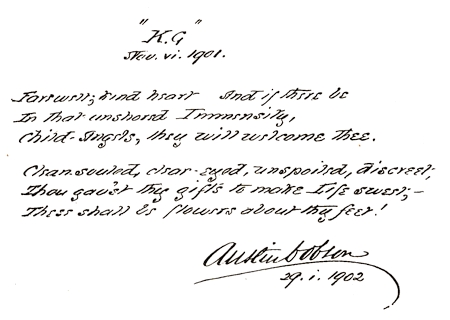 "K.G"
Nov. vi. 1901.
Farewell, kind heart And if there be
In that unshored Immensity,
Child-Angels, they will welcome thee.
Clean-souled, clear-eyed, unspoiled, discreet,
Thou gav'st thy gifts to make Life sweet;–
These shall be flowers about thy feet!
Austin Dobson
29. i. 1902